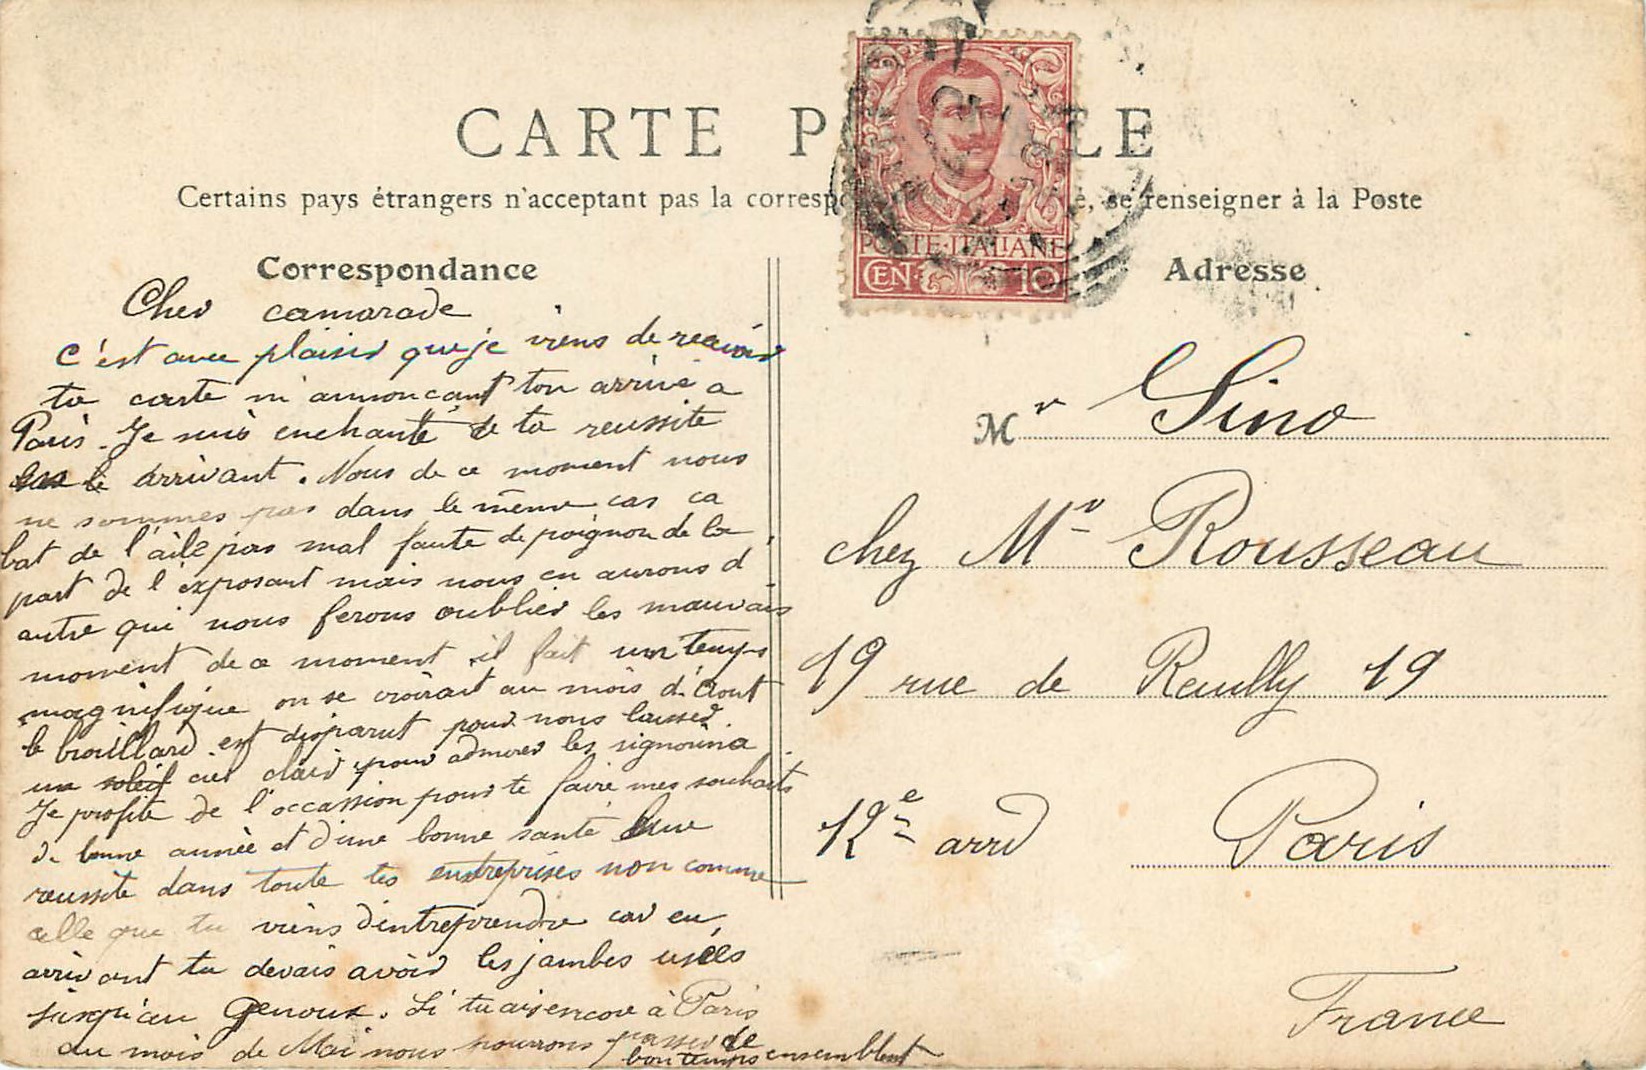 CARTE P LE
Certains pays étrangers n'acceptant pas la corresp e, se renseigner à la Poste
POSTE·ITALIANE
CEN· 10
Correspondance
Cher camarade
c'est avec plaisir que je viens de recevoir
ta carte m'annonçant ton arrivé a
Paris. Je suis enchanté de ta reussite
le arrivant. Nous de ce moment nous
ne sommes pas dans le même cas ca
bat de l'aile pas mal faute de poignon de la
part de l'exposant mais nous en aurons d
autre qui nous ferons oublier les mauvais
moment de ce moment il fait un temps
magnifique on se croirait au mois d'Aout
le brouillard est disparut pour nous laisser
un soleil ciel clair pour admirer les signorina
Je profite de l'occassion pour te faire mes souhaits
de bonne année et d'une bonne santé
reussite dans toute tes entreprises non comme
celle que tu viens d'entreprendre car en
arrivant tu devais avoir les jambes usées
jusqu'au genoux. Si tu ais encore à Paris
au mois de Mai nous pourrons passer de
bon temps ensemblent
Adresse
Mr Sino
chez Mr Rousseau
19 rue de Reuilly 19
12e arrd Paris
France